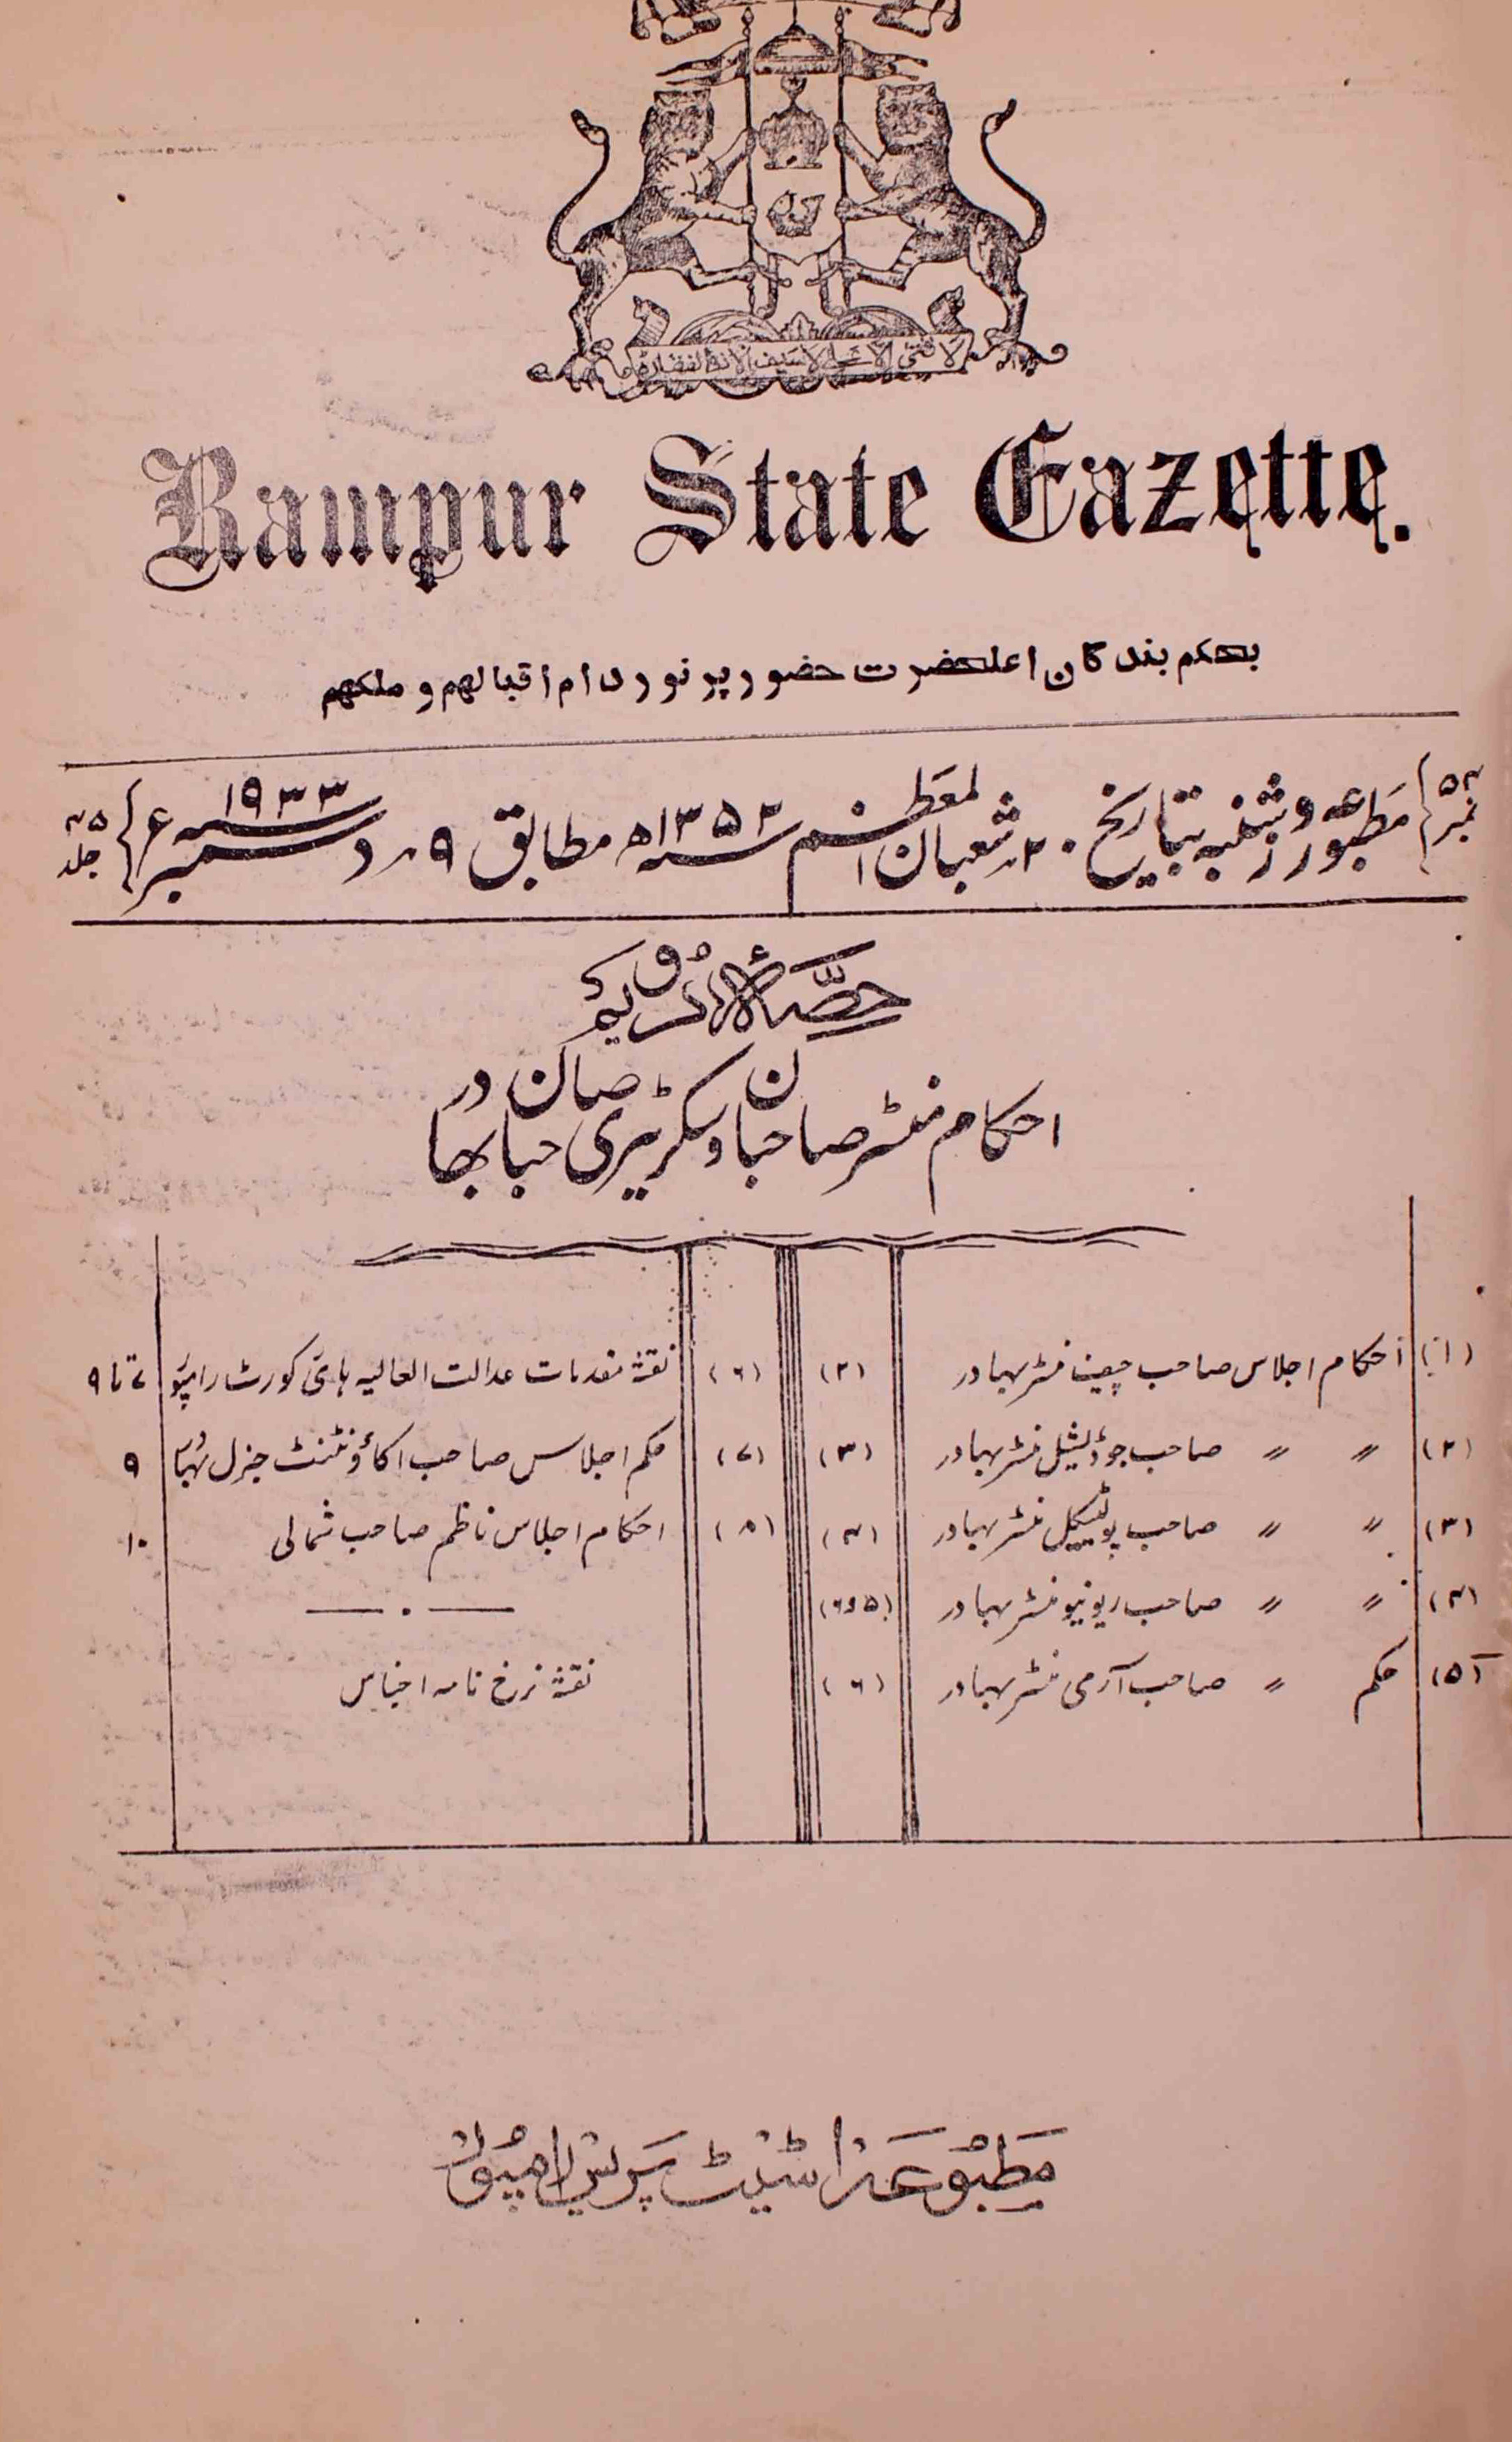 لا فتى الا علي لا سيف الا ذوالفقار
Rampur State Gazette.
بحکم بندگان اعلحضرت حضور پر نور دام اقبالهم و ملکهم
نمبر ۵۲ مطبوعہ روز شنبہ بتاریخ ۲۰ شعبان المعظم سنہ ۱۳۵۲ ھ مطابق ۹ دسمبر سنہ ۱۹۳۳ ء جلد ۴۵
حصّہ
احکام منسٹر صاحبان و سکرٹیری صاحبان بہادر
(۱) احکام اجلاس صاحب چیف منسٹر بہادر (۲)
(۲) 〃 〃 صاحب جوڈیشیل منسٹر بہادر (۳)
(۳) 〃 〃 صاحب پولیٹیکل منسٹر بہادر (۴)
(۴) 〃 〃 صاحب ریونیو منسٹر بہادر (۵و۶)
(۵) حکم 〃 صاحب آرمی منسٹر بہادر (۶)
(۶) نقشہ مقدمات عدالت العالیہ ہائی کورٹ رامپور ۷ تا ۹
(۷) حکم اجلاس صاحب اکاؤنٹنٹ جنرل بہادر ۹
(۸) احکام اجلاس ناظم صاحب شمالی ۱۰
نقشہ نرخ نامہ اجناس
مطبوعہ اسٹیٹ پریس رامپور